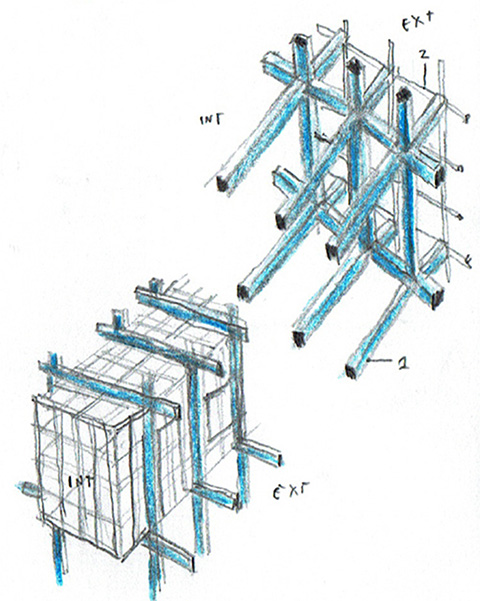 EXT
2
INT
1
INT
EXT